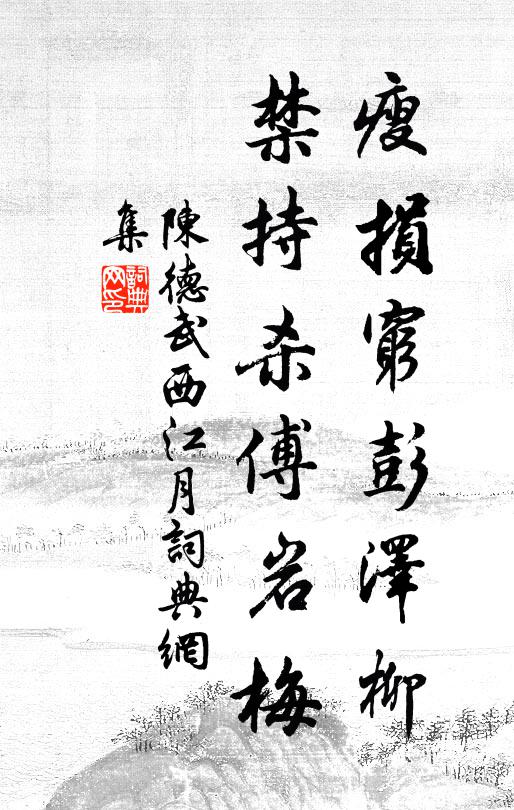 瘦損窮彭澤柳
禁持杀傅岩梅
陳德武西江月詞典網
集
詞典網印